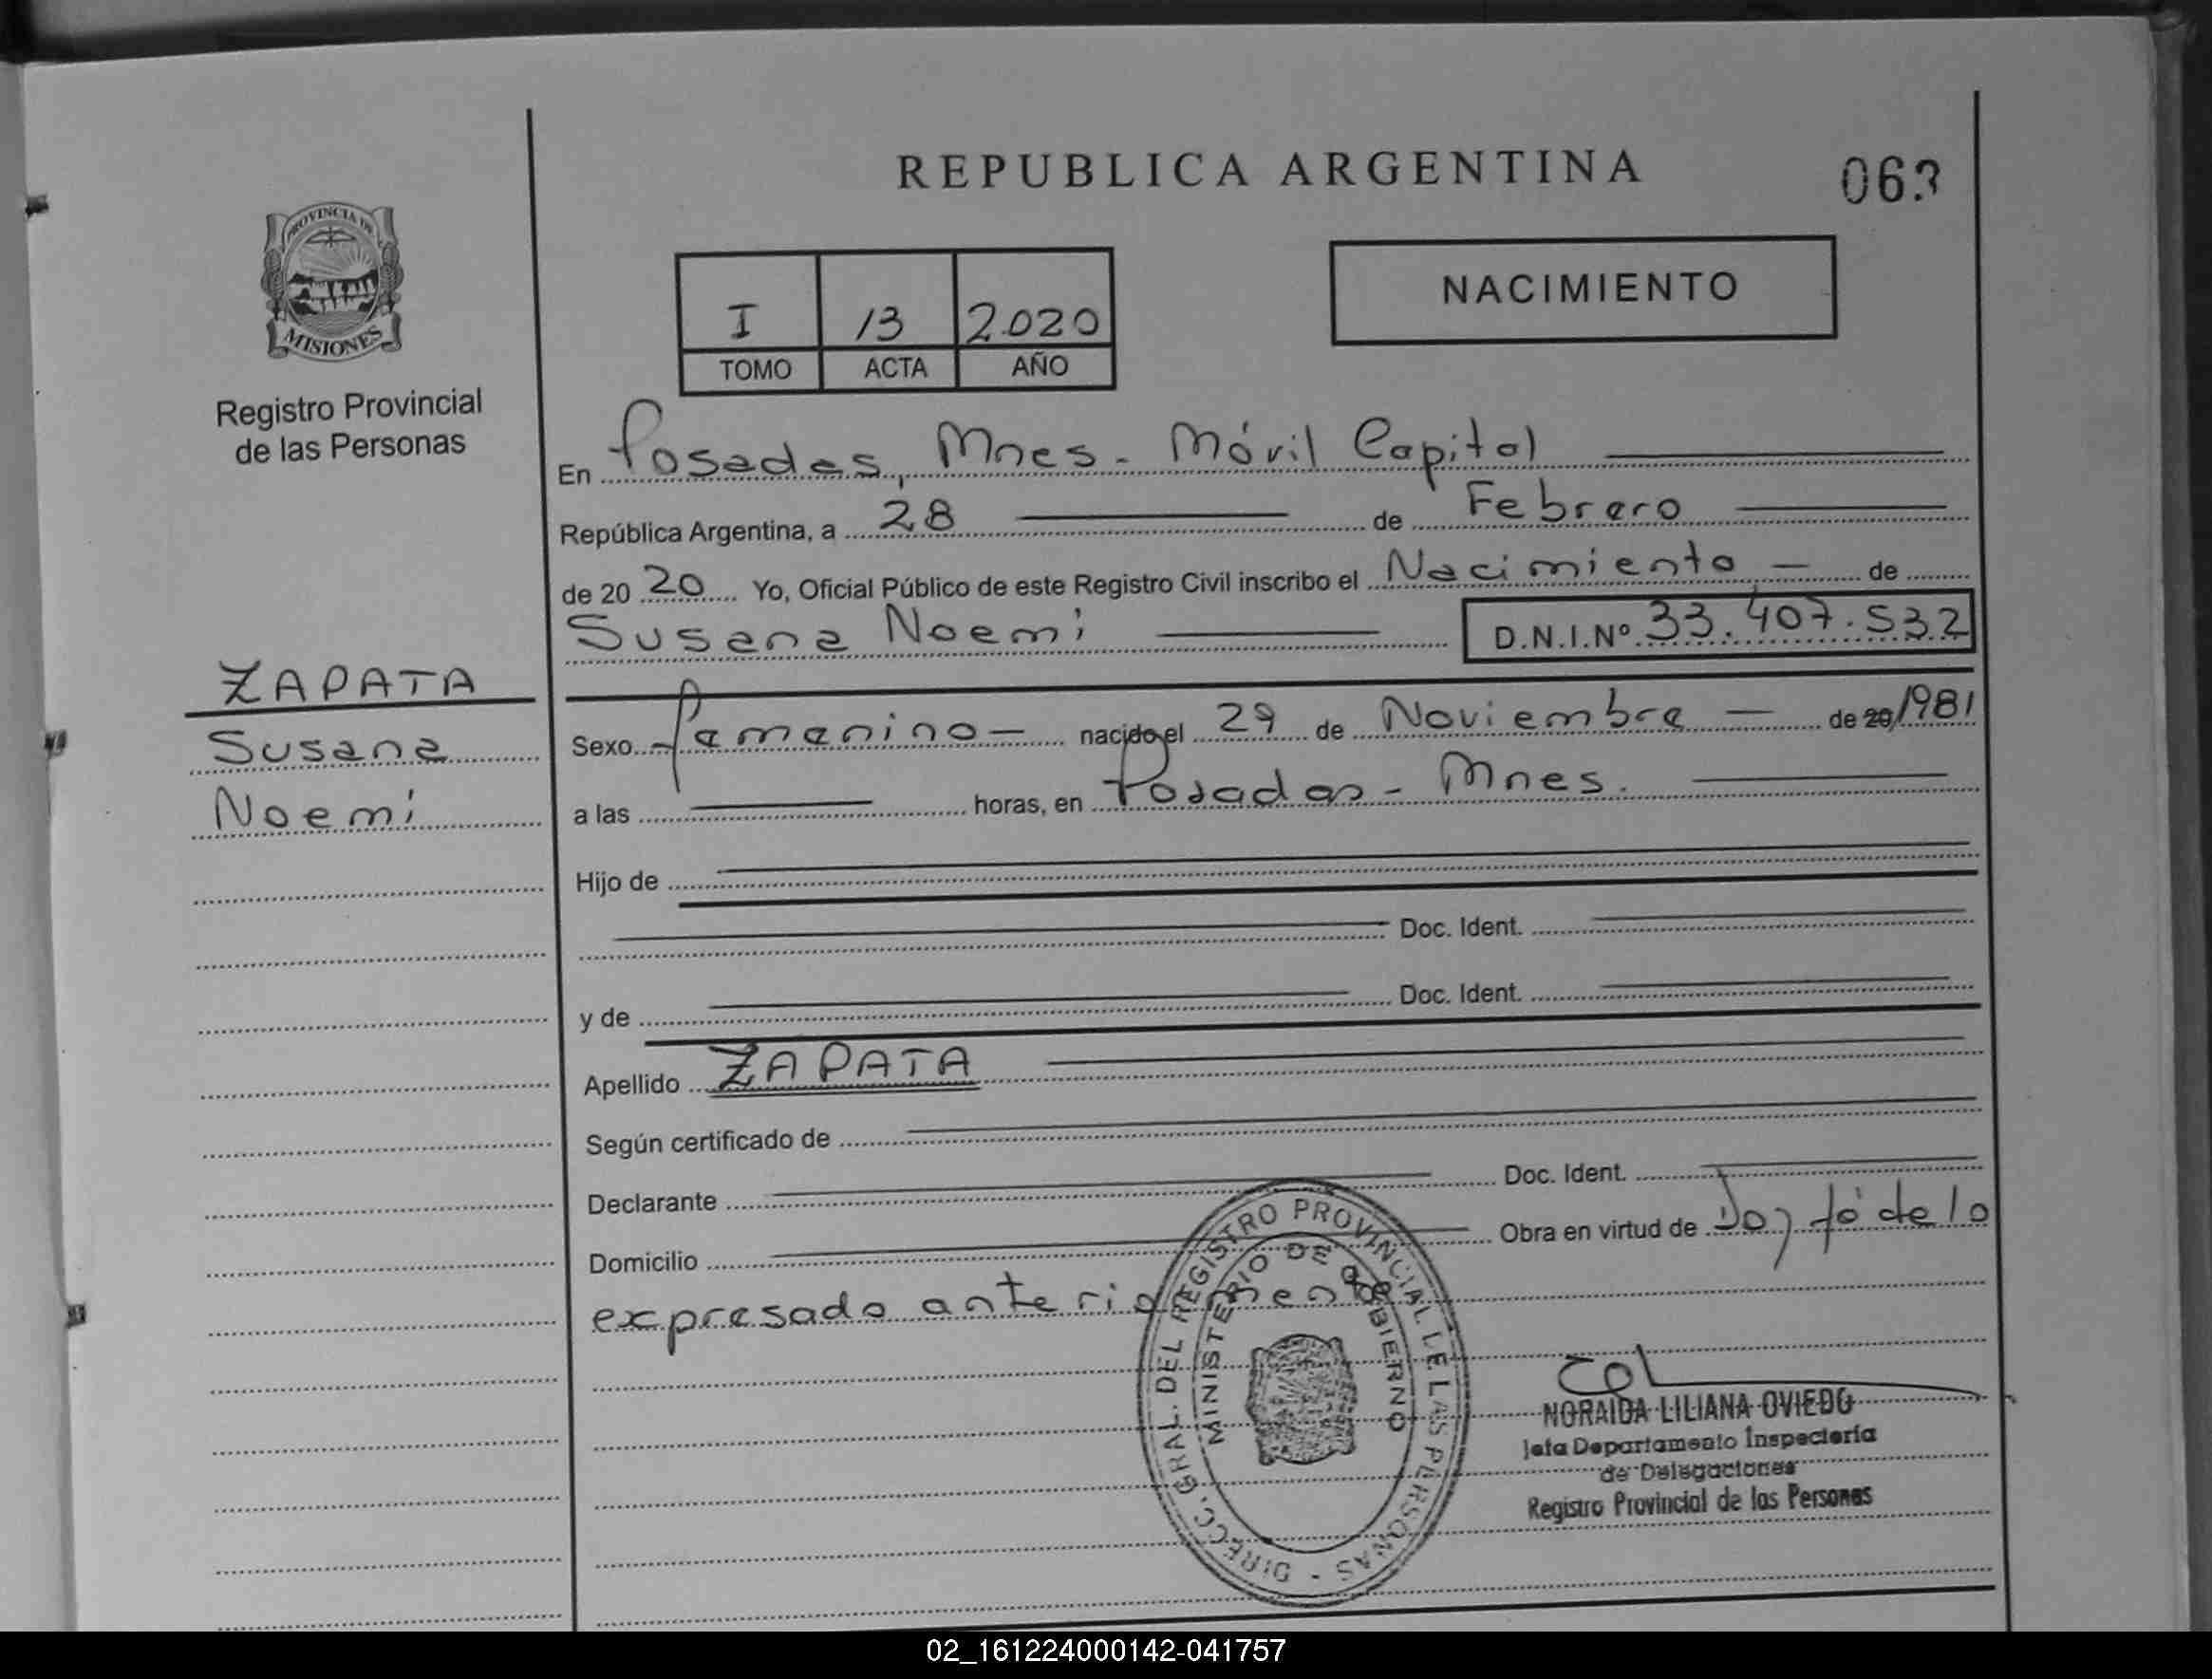 REPUBLICA ARGENTINA
063
PROVINCIA DE
MISIONES
Registro Provincial
de las Personas
I 13 2020
TOMO ACTA AÑO
NACIMIENTO
En Posadas, Mnes - Móvil Capital
República Argentina, a 28 de Febrero
de 20 20 Yo, Oficial Público de este Registro Civil inscribo el Nacimiento - de
Susana Noemi D.N.I.Nº 33.407.532
ZAPATA
Susana
Noemi
Sexo femenino - nacido el 29 de Noviembre - de 20/1981
a las horas, en Posadas - Mnes.
Hijo de
Doc. Ident.
y de Doc. Ident.
Apellido ZAPATA
Según certificado de
Declarante Doc. Ident.
Domicilio Obra en virtud de lo
expresado anteriormente
DIRECC. GRAL. DEL REGISTRO PROVINCIAL DE LAS PERSONAS -
MINISTERIO DE GOBIERNO
NORAIDA LILIANA OVIEDO
Jefa Departamento Inspectoría
de Delegaciones
Registro Provincial de las Personas
02_161224000142-041757